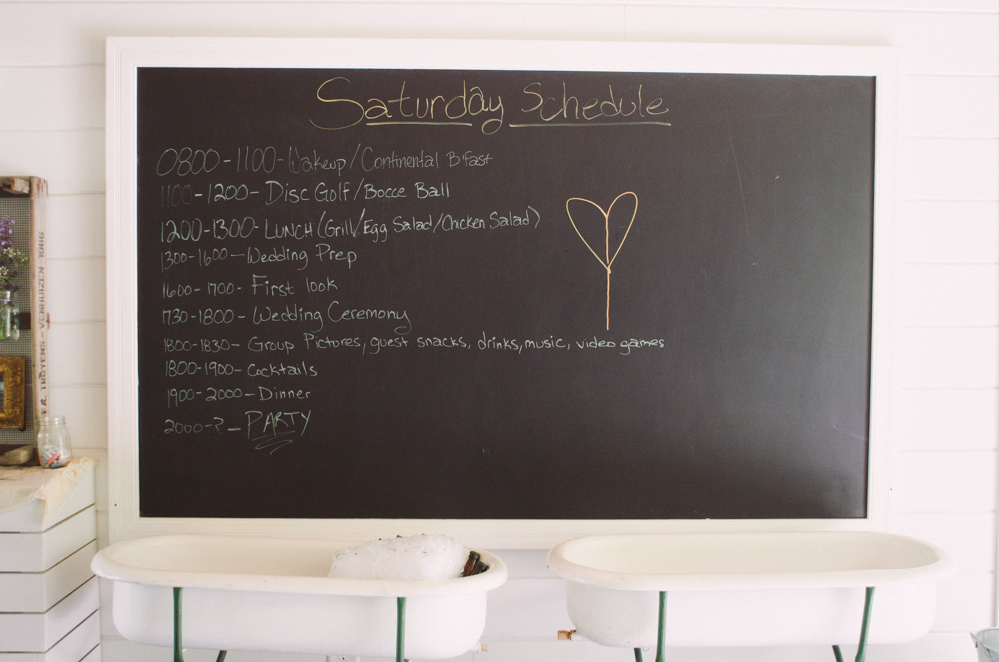 Saturday Schedule
0800-1100-Wakeup/Continental B'fast
1100-1200-Disc Golf/Bocce Ball
1200-1300-LUNCH (Grill/Egg Salad/Chicken Salad)
1300-1600-Wedding Prep
1600-1700-First look
1730-1800-Wedding Ceremony
1800-1830-Group Pictures, guest snacks, drinks, music, video games
1800-1900-Cocktails
1900-2000-Dinner
2000-?-PARTY